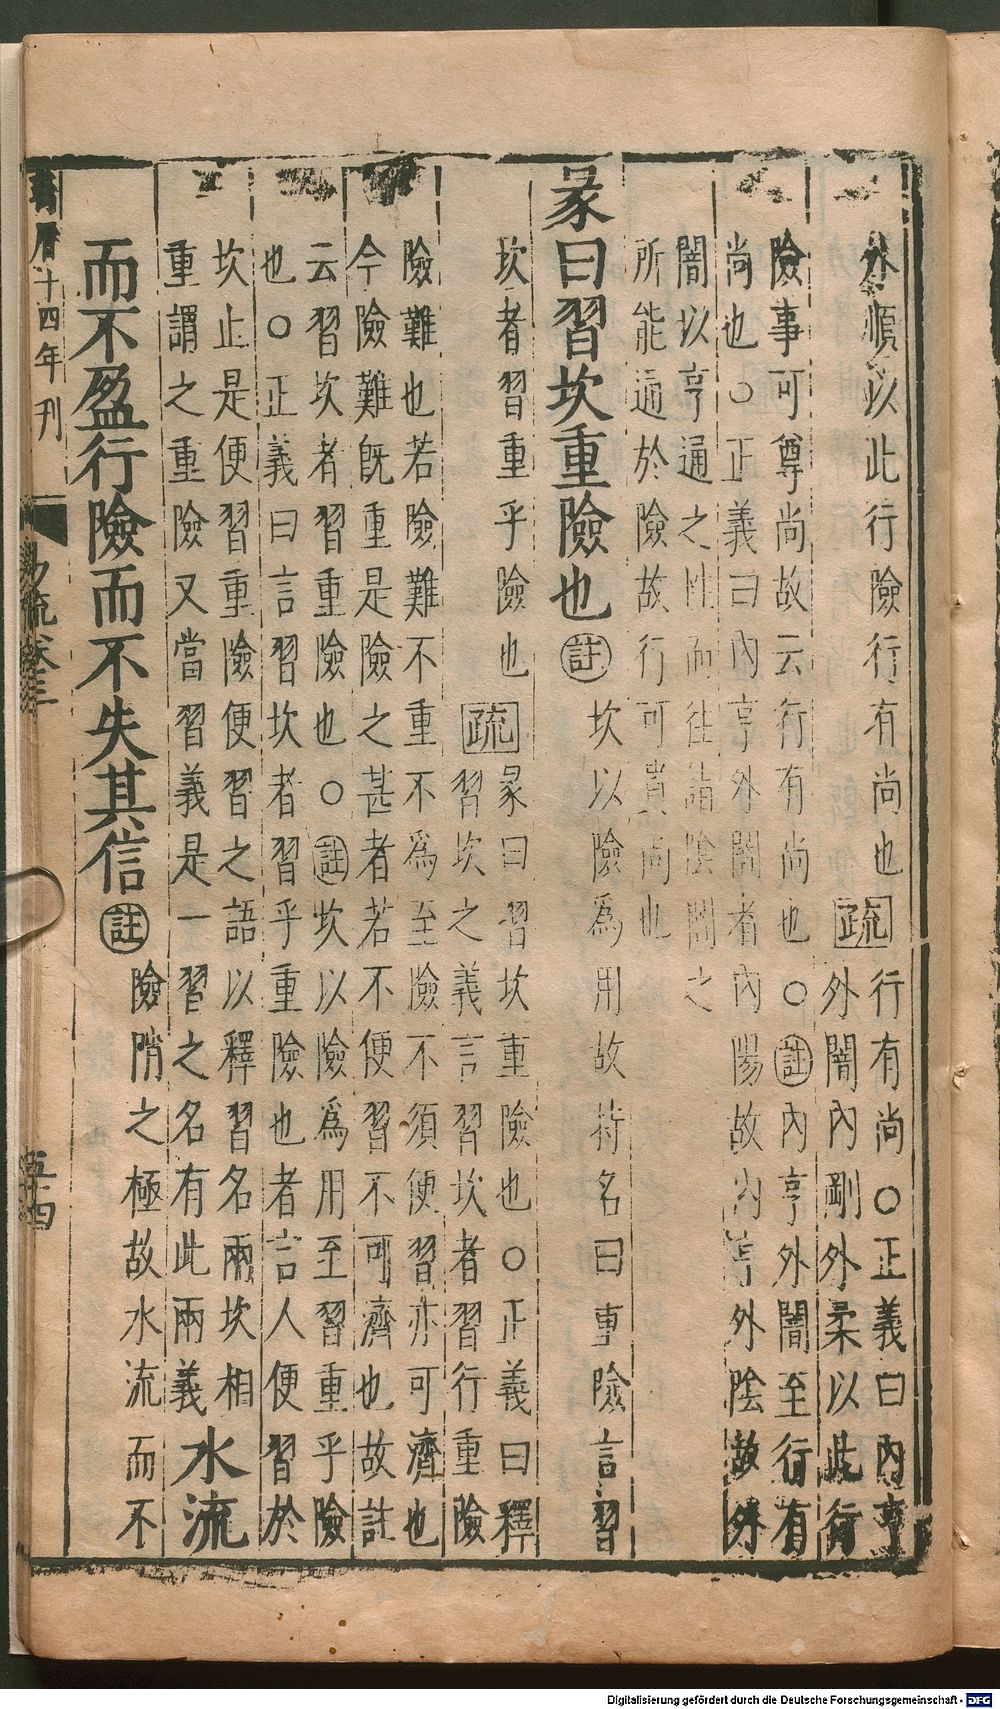 外順以此行險行有尚也疏行有尚○正義曰內亨
外闇內剛外柔以此行
險事可尊尚故云行有尚也○註內亨外闇至行有
尚也○正義曰內亨外闇者內陽故內亨外陰故外
闇以亨通之性而往詣陰闇之
所能通於險故行可貴尚也
彖曰習坎重險也註坎以險爲用故特名曰重險言習
坎者習重乎險也疏彖曰習坎重險也○正義曰釋
習坎之義言習坎者習行重險
險難也若險難不重不爲至險不須便習亦可濟也
今險難既重是險之甚者若不便習不可濟也故註
云習坎者習重險也○註坎以險爲用至習重乎險
也○正義曰言習坎者習乎重險也者言人便習於
坎止是便習重險便習之語以釋習名兩坎相
重謂之重險又當習義是一習之名有此兩義
水流
而不盈行險而不失其信註險陗之極故水流而不
萬曆十四年刊
易疏卷三
五十四
Digitalisierung gefördert durch die Deutsche Forschungsgemeinschaft - DFG